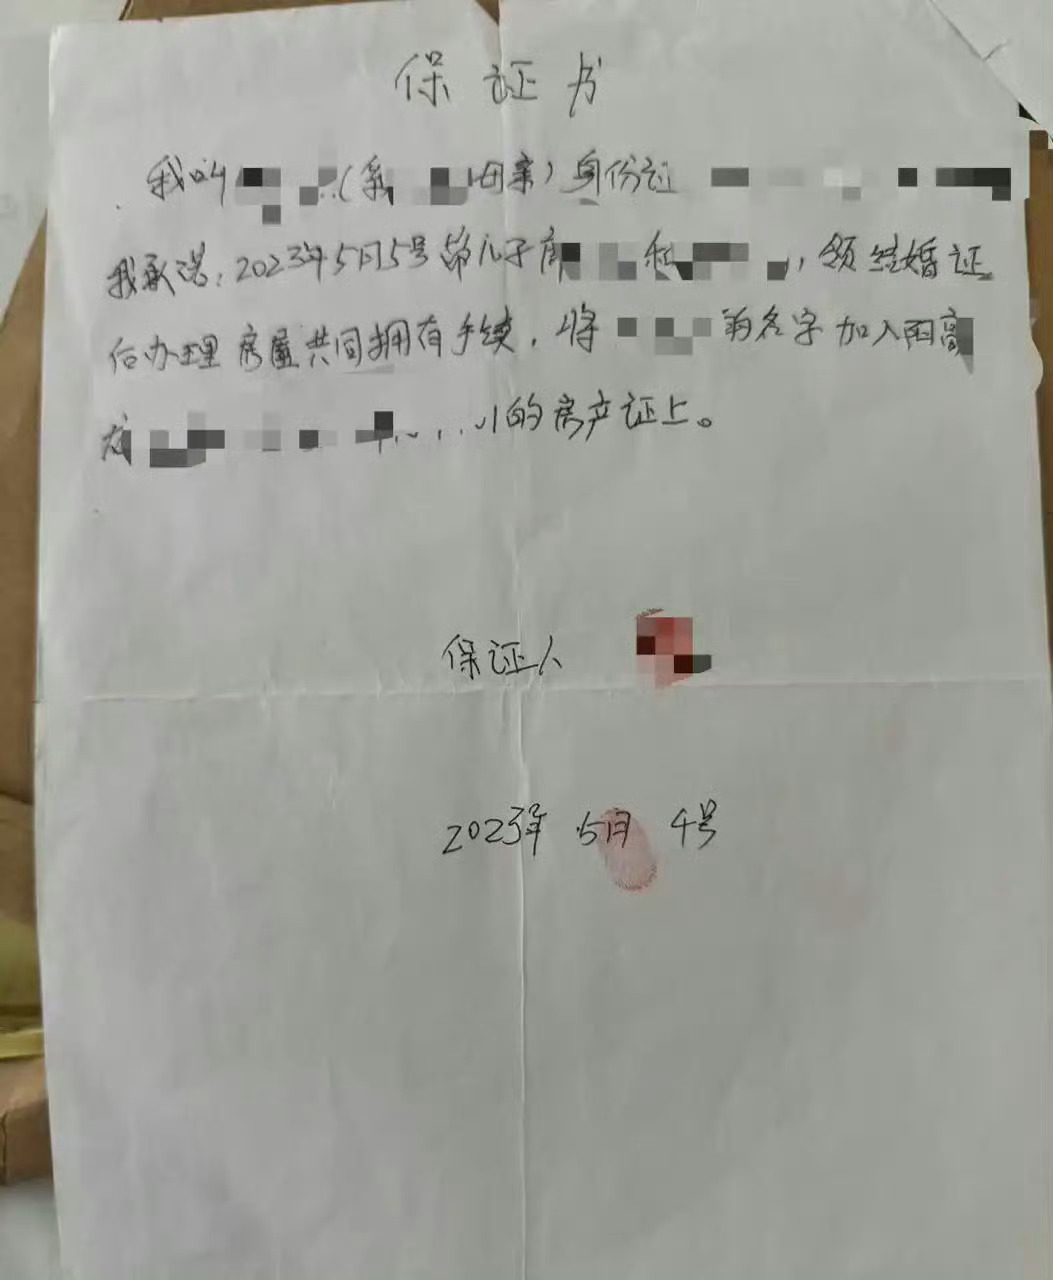 保证书
我叫 (系 母亲)身份证
我承诺:2023年5月5号 儿子 和 ,领结婚证
后办理房屋共同拥有手续,将 的名字加入
的房产证上。
保证人
2023年 5月 4号